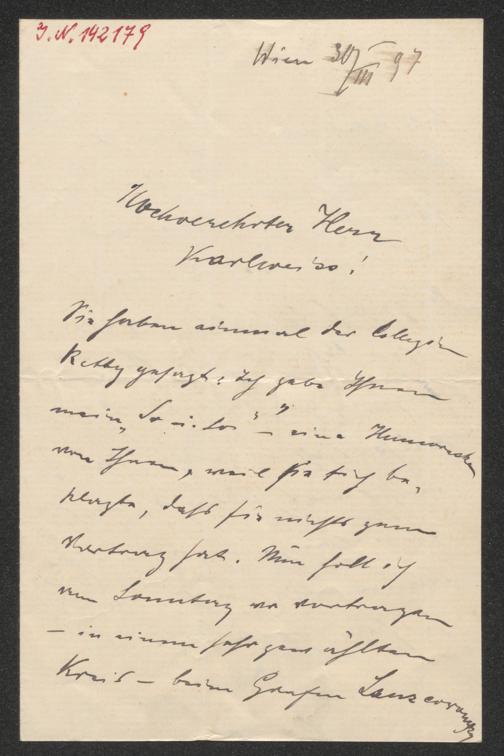 J. N. 142179
Wien 30/III 97
Hochverehrter Herr
Karlweiss!
Sie haben einmal der Collegin
Retty gesagt: ich gebe Ihnen
mein " – eine Humoreske
von Ihnen, weil sie sich be-
klagte, daß sie nichts zum
Vortrag hat. Nun soll ich
am Sonntag wo vortragen
– in einem sehr gewählten
Kreis – beim Grafen Lanzcoronsky